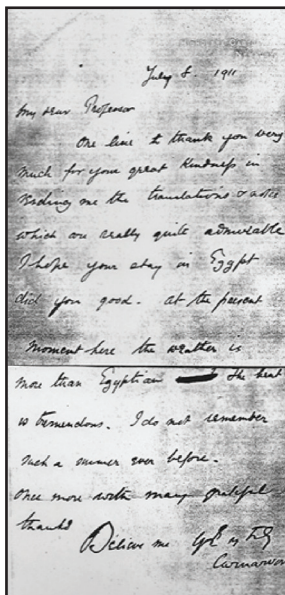 July 8. 1911
My dear Professor
One line to thank you very
much for your great kindness in
sending me the translations & notes
which are really quite admirable
I hope your stay in Egypt
did you good - at the present
moment here the weather is
more than Egyptian the heat
is tremendous. I do not remember
such a summer ever before.
Once more with many grateful
thanks
Believe me
Carnarvon